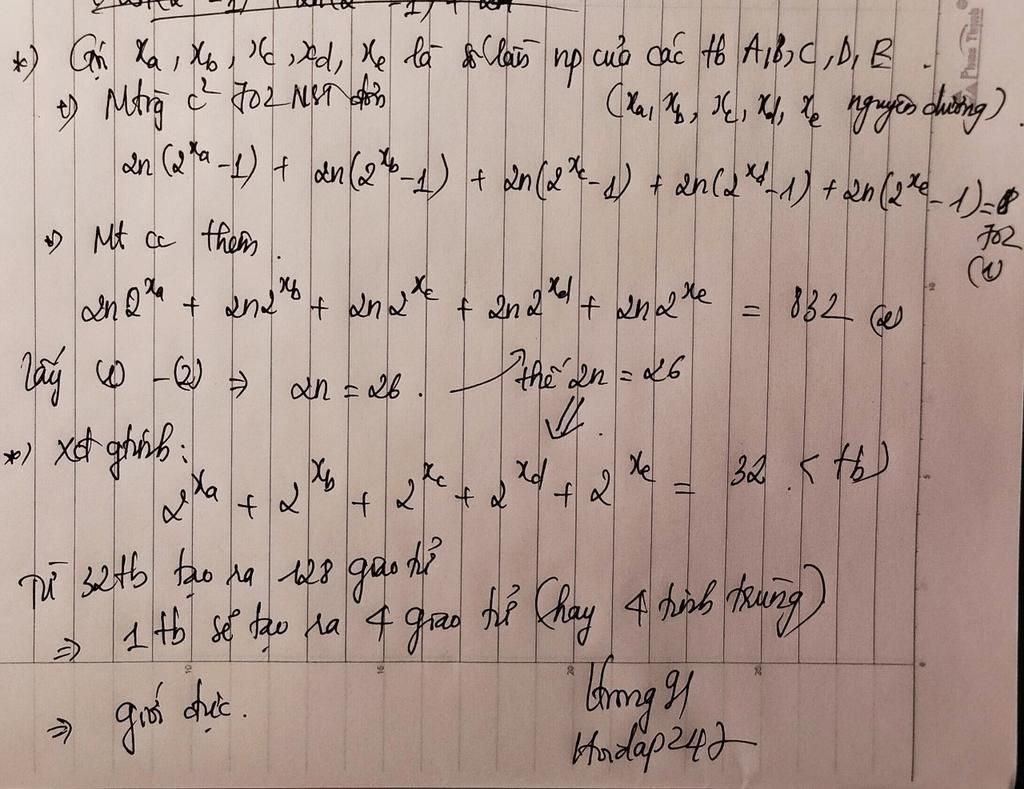 *) Gọi xa, xb, xc, xd, xe là số lần np của các tb A, B, C, D, E.
+) Mtrg c² 702 NST đơn (xa, xb, xc, xd, xe nguyên dương)
2n(2^xa - 1) + 2n(2^xb - 1) + 2n(2^xc - 1) + 2n(2^xd - 1) + 2n(2^xe - 1) = 702 (1)
+) Mt cc thêm.
2n2^xa + 2n2^xb + 2n2^xc + 2n2^xd + 2n2^xe = 832 (2)
Lấy (1) - (2) ⇒ 2n = 26. → thế 2n = 26
⇓
*) xđ gtính:
2^xa + 2^xb + 2^xc + 2^xd + 2^xe = 32. (tb)
Từ 32tb tạo ra 128 giao tử
⇒ 1 tb sẽ tạo ra 4 giao tử (hay 4 tinh trùng)
⇒ giới đực.
Hoidap247
Phong Thịnh
10 15 20 25